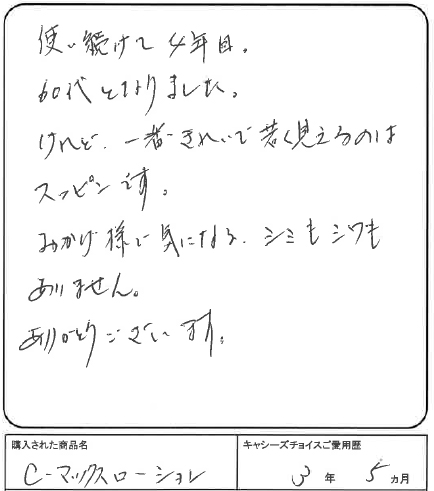 使い続けて4年目。
60代となりました。
けれど、一番きれいで若く見えるのは
スッピンです。
おかげ様で気になる、シミもシワも
ありません。
ありがとうございます。
購入された商品名
キャシーズチョイスご愛用歴
C-マックスローション
3年 5ヵ月